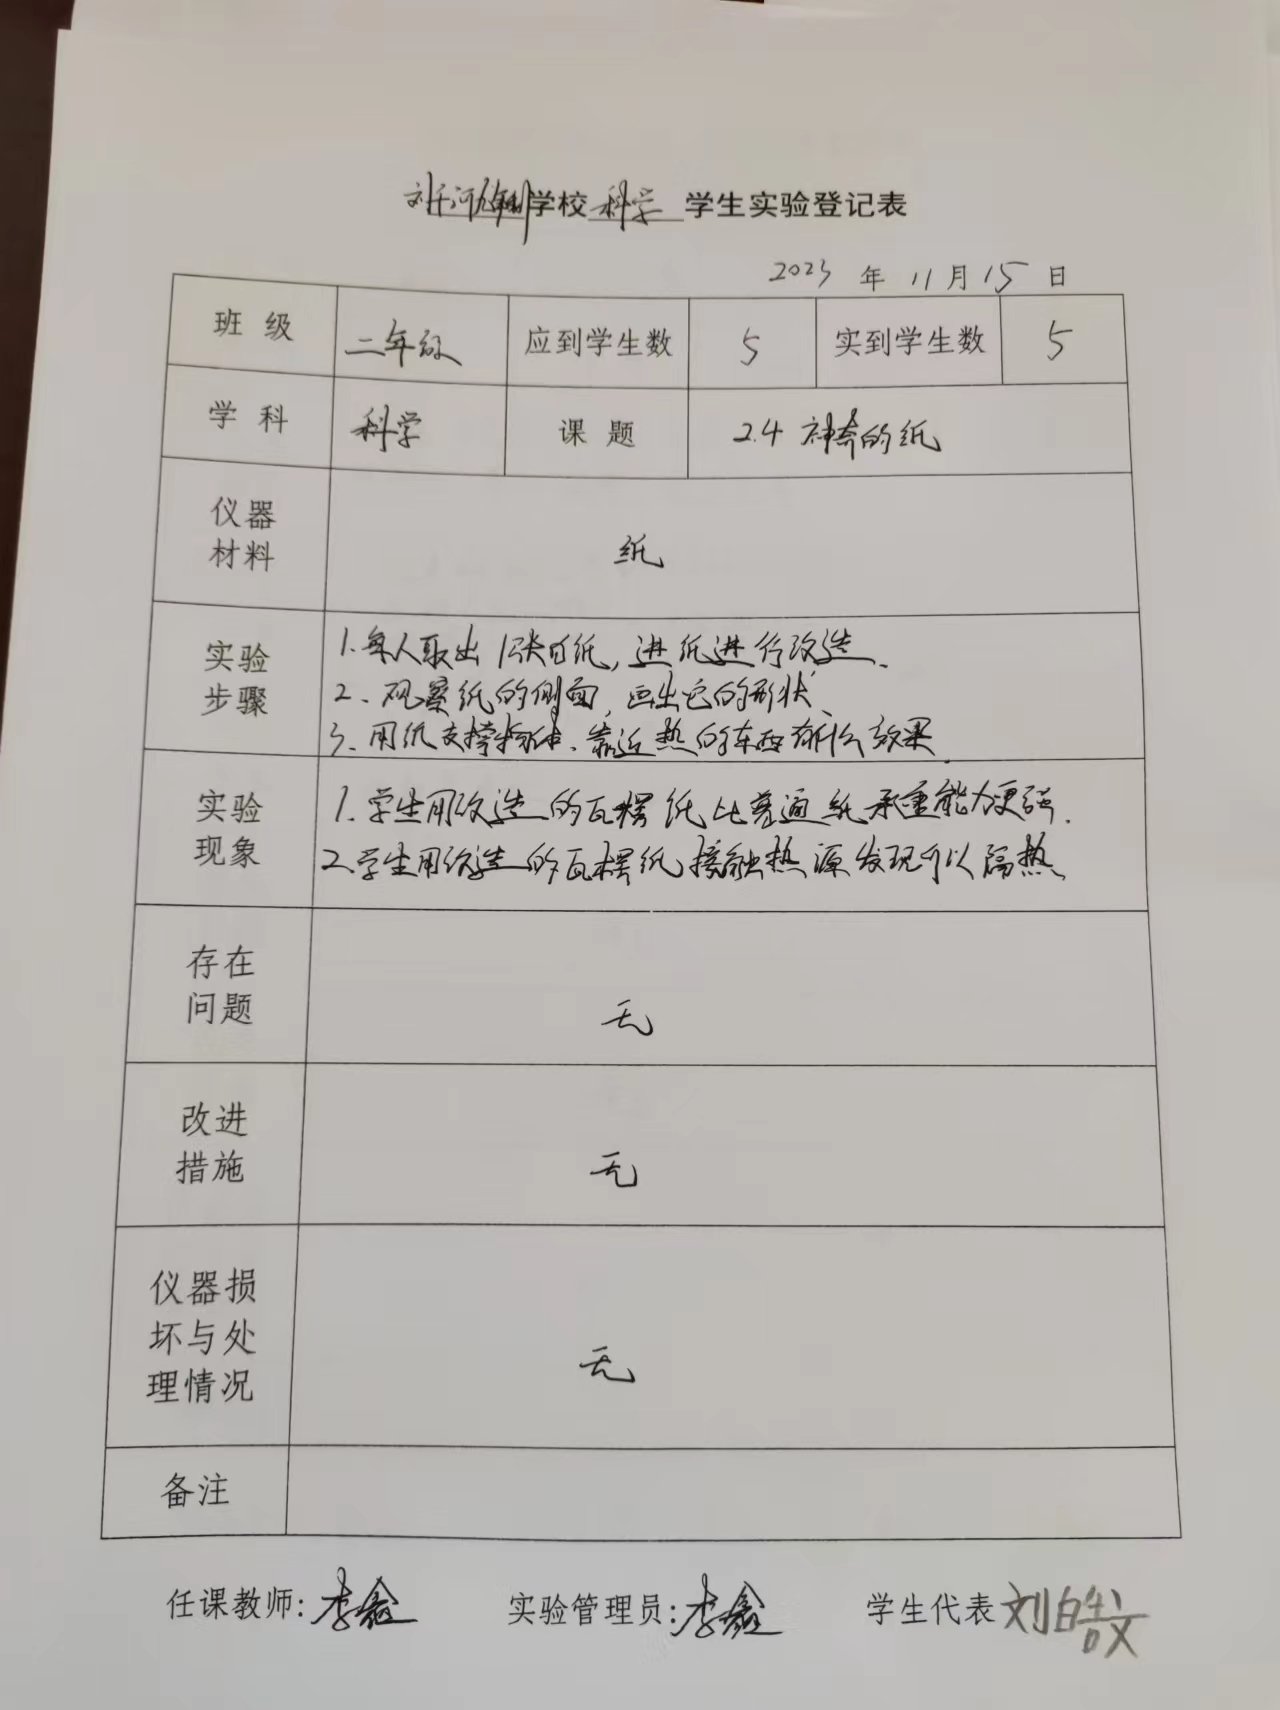 学校 科学 学生实验登记表
2023 年 11 月 15 日
班 级 二年级 应到学生数 5 实到学生数 5
学 科 科学 课 题 2.4 神奇的纸
仪器
材料
纸
实验
步骤
1. 每人取出 1张白纸, 进纸进行改造.
2、观察纸的侧面, 画出它的形状.
3. 用纸支撑物体、靠近热的东西有什么效果.
实验
现象
1. 学生用改造的瓦楞纸比普通纸承重能力更强.
2. 学生用改造的瓦楞纸接触热源发现可以隔热
存在
问题
无
改进
措施
无
仪器损
坏与处
理情况
无
备注
任课教师: 李鑫 实验管理员: 李鑫 学生代表 刘皓文